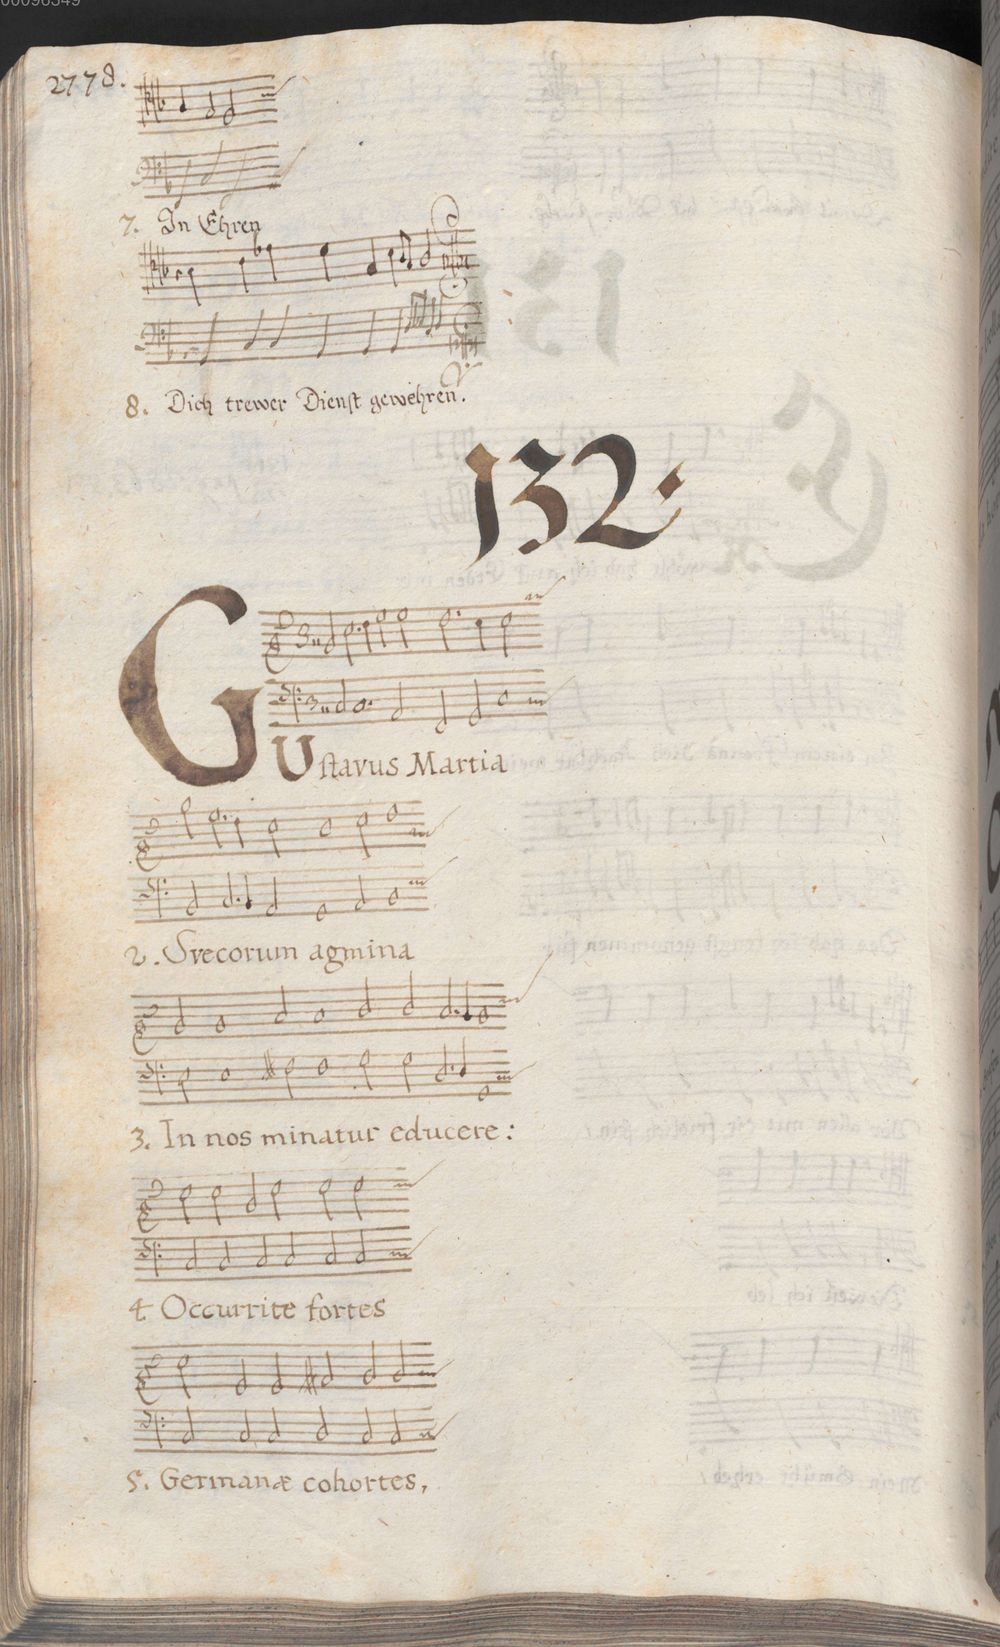 00096349
2778.
7. In Ehren
8. Dich trewer Dienst gewehren.
132.
GUstavus Martia
2. Svecorum agmina
3. In nos minatur educere:
4 Occurrite fortes
5. Germanæ cohortes,